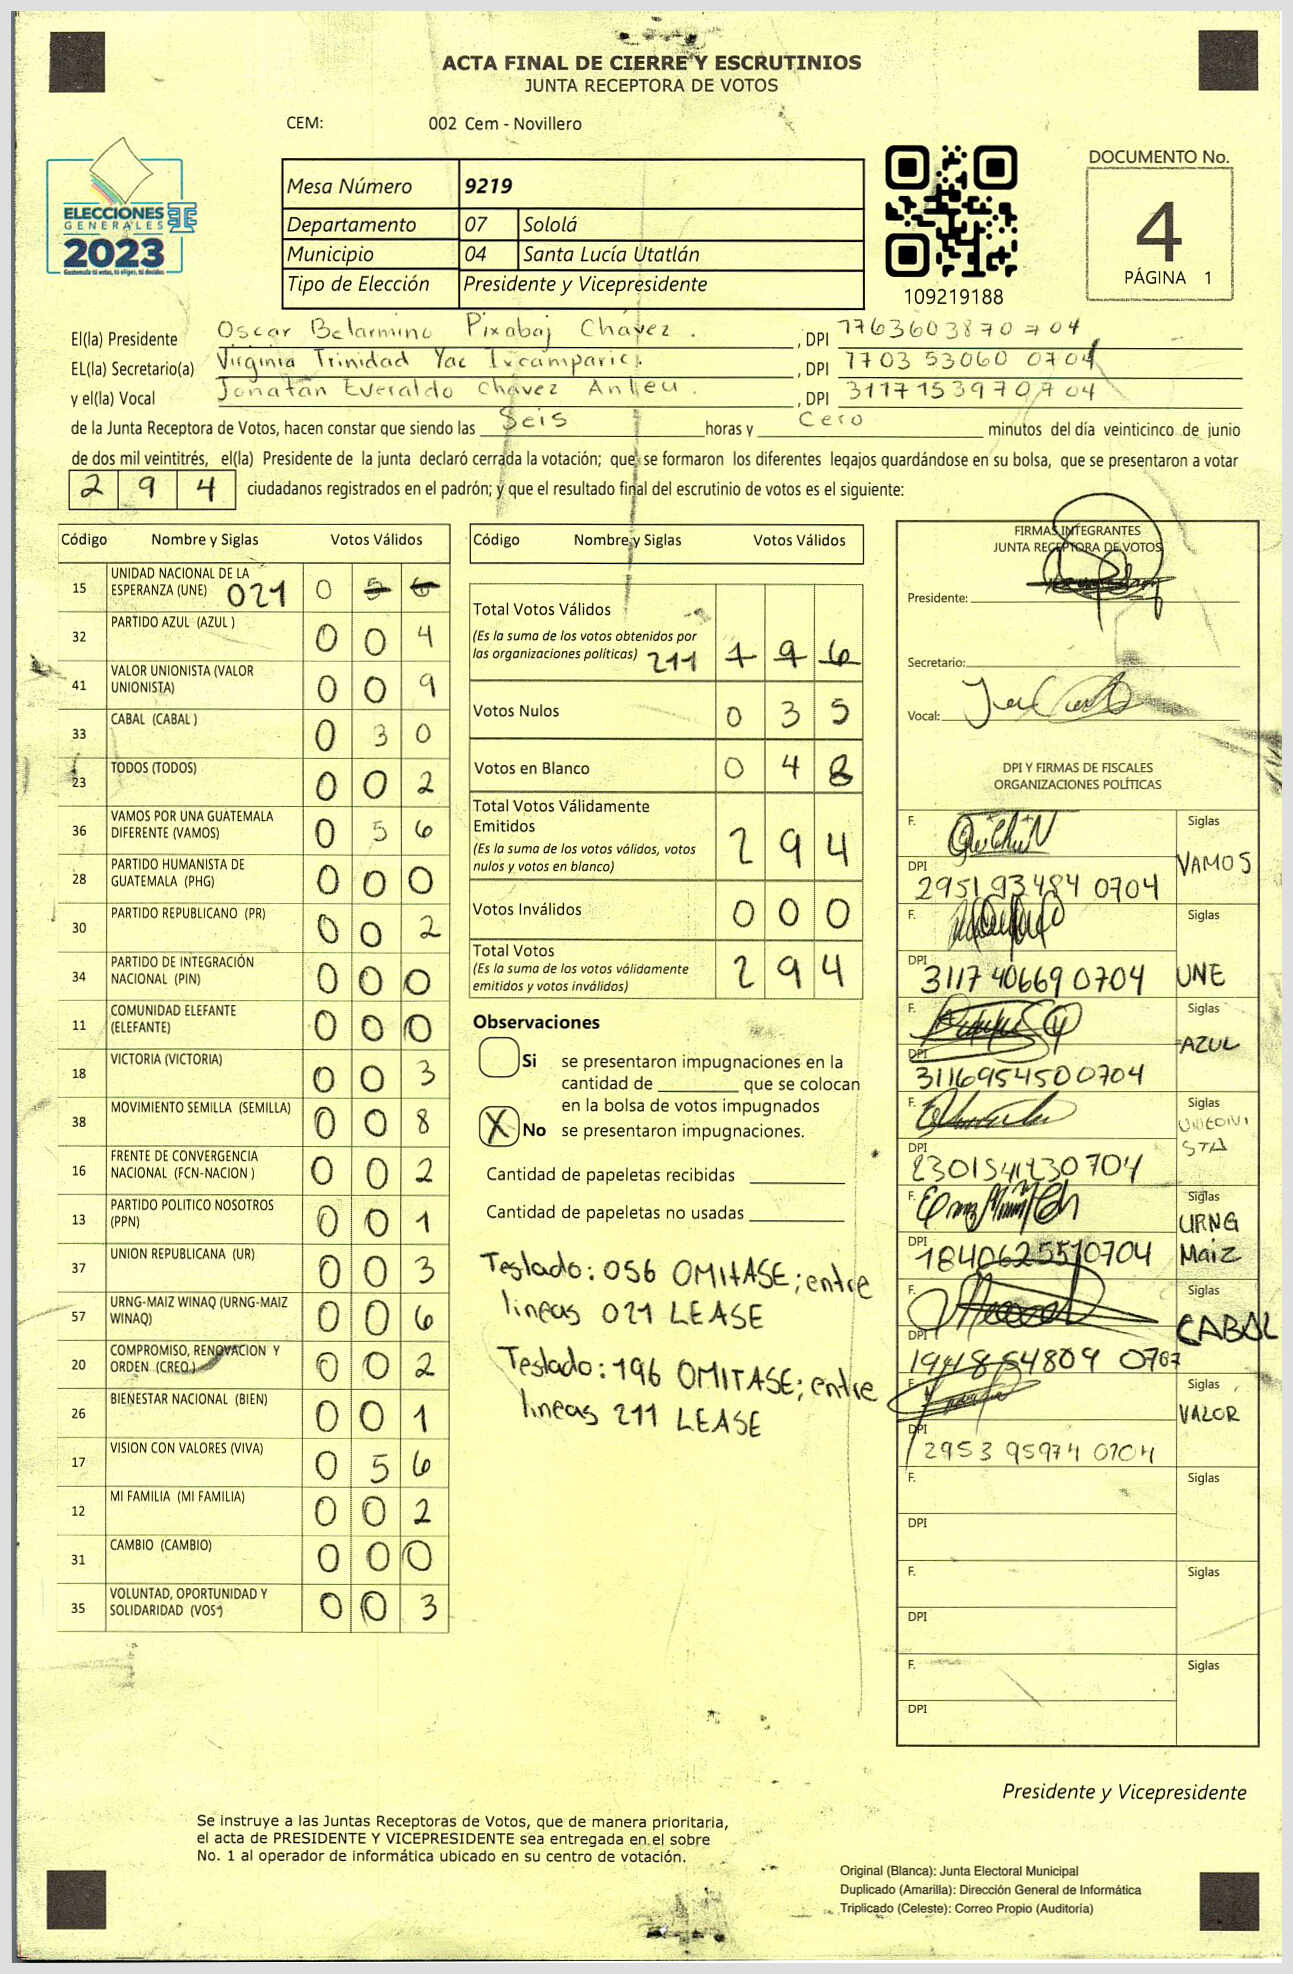 ACTA FINAL DE CIERRE Y ESCRUTINIOS
JUNTA RECEPTORA DE VOTOS
CEM: 002 Cem - Novillero
ELECCIONES
GENERALES
2023
Guatemala tú votas, tú eliges, tú decides
Mesa Número 9219
Departamento 07 Sololá
Municipio 04 Santa Lucía Utatlán
Tipo de Elección Presidente y Vicepresidente
109219188
DOCUMENTO No.
4
PÁGINA 1
El(la) Presidente Oscar Belarmino Pixabaj Chávez. , DPI 7763603870704
EL(la) Secretario(a) Virginia Trinidad Yac Ixcamparic. , DPI 7703 53060 0704
y el(la) Vocal Jonatan Everaldo Chávez Anleu , DPI 3117153970704
de la Junta Receptora de Votos, hacen constar que siendo las Seis horas y Cero minutos del día veinticinco de junio
de dos mil veintitrés, el(la) Presidente de la junta declaró cerrada la votación; que se formaron los diferentes legajos guardándose en su bolsa, que se presentaron a votar
294 ciudadanos registrados en el padrón; y que el resultado final del escrutinio de votos es el siguiente:
Código Nombre y Siglas Votos Válidos
15 UNIDAD NACIONAL DE LA ESPERANZA (UNE) 021 0 5 6
32 PARTIDO AZUL (AZUL ) 0 0 4
41 VALOR UNIONISTA (VALOR UNIONISTA) 0 0 9
33 CABAL (CABAL ) 0 3 0
23 TODOS (TODOS) 0 0 2
36 VAMOS POR UNA GUATEMALA DIFERENTE (VAMOS) 0 5 6
28 PARTIDO HUMANISTA DE GUATEMALA (PHG) 0 0 0
30 PARTIDO REPUBLICANO (PR) 0 0 2
34 PARTIDO DE INTEGRACIÓN NACIONAL (PIN) 0 0 0
11 COMUNIDAD ELEFANTE (ELEFANTE) 0 0 0
18 VICTORIA (VICTORIA) 0 0 3
38 MOVIMIENTO SEMILLA (SEMILLA) 0 0 8
16 FRENTE DE CONVERGENCIA NACIONAL (FCN-NACION ) 0 0 2
13 PARTIDO POLITICO NOSOTROS (PPN) 0 0 1
37 UNION REPUBLICANA (UR) 0 0 3
57 URNG-MAIZ WINAQ (URNG-MAIZ WINAQ) 0 0 6
20 COMPROMISO, RENOVACION Y ORDEN (CREO ) 0 0 2
26 BIENESTAR NACIONAL (BIEN) 0 0 1
17 VISION CON VALORES (VIVA) 0 5 6
12 MI FAMILIA (MI FAMILIA) 0 0 2
31 CAMBIO (CAMBIO) 0 0 0
35 VOLUNTAD, OPORTUNIDAD Y SOLIDARIDAD (VOS) 0 0 3
Código Nombre y Siglas Votos Válidos
Total Votos Válidos
(Es la suma de los votos obtenidos por
las organizaciones políticas) 211 1 9 6
Votos Nulos 0 3 5
Votos en Blanco 0 4 8
Total Votos Válidamente
Emitidos
(Es la suma de los votos válidos, votos
nulos y votos en blanco) 2 9 4
Votos Inválidos 0 0 0
Total Votos
(Es la suma de los votos válidamente
emitidos y votos inválidos) 2 9 4
Observaciones
Si se presentaron impugnaciones en la
cantidad de ________ que se colocan
en la bolsa de votos impugnados
X No se presentaron impugnaciones.
Cantidad de papeletas recibidas
Cantidad de papeletas no usadas
Testado: 056 OMITASE; entre
lineas 021 LEASE
Testado: 196 OMITASE; entre
lineas 211 LEASE
FIRMAS INTEGRANTES
JUNTA RECEPTORA DE VOTOS
Presidente:
Secretario:
Vocal:
DPI Y FIRMAS DE FISCALES
ORGANIZACIONES POLÍTICAS
F. Siglas VAMOS
DPI 2951 93484 0704
F. Siglas UNE
DPI 3117 40669 0704
F. Siglas AZUL
DPI 3116954500704
F. Siglas UNEONISTA
DPI 2301541230704
F. Siglas URNG Maiz
DPI 1840625510704
F. Siglas CABAL
DPI 1948 54809 0707
F. Siglas VALOR
DPI 2953 95974 0704
F. Siglas
DPI
F. Siglas
DPI
F. Siglas
DPI
Presidente y Vicepresidente
Se instruye a las Juntas Receptoras de Votos, que de manera prioritaria,
el acta de PRESIDENTE Y VICEPRESIDENTE sea entregada en el sobre
No. 1 al operador de informática ubicado en su centro de votación.
Original (Blanca): Junta Electoral Municipal
Duplicado (Amarilla): Dirección General de Informática
Triplicado (Celeste): Correo Propio (Auditoría)